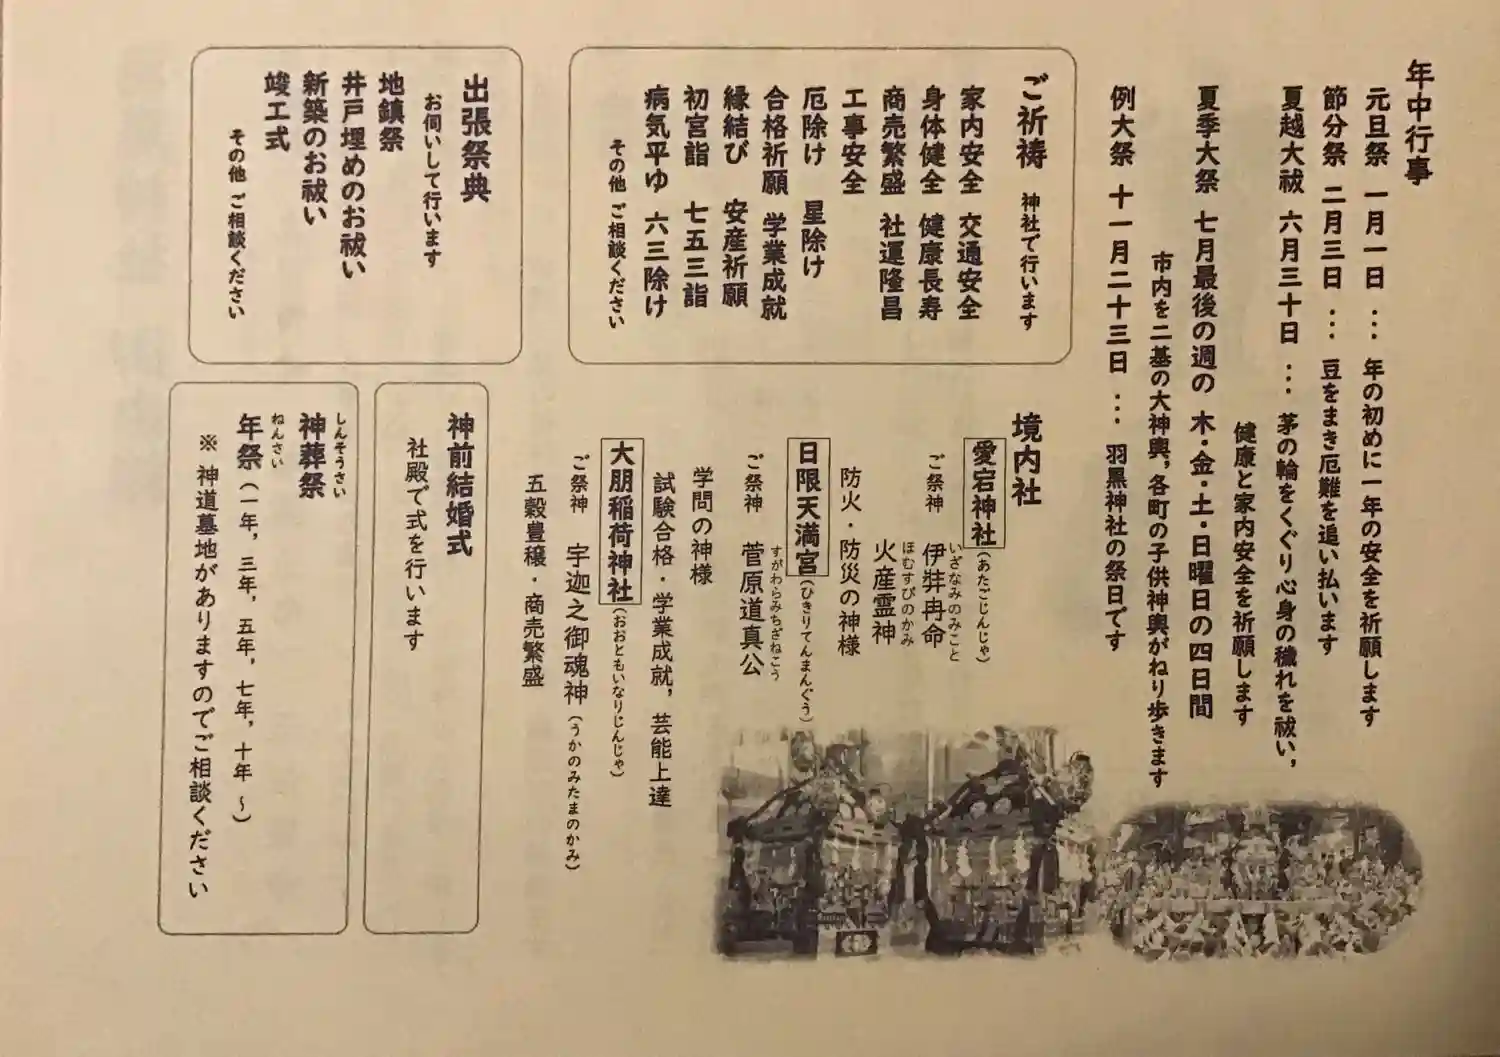 年中行事
元旦祭 一月一日 … 年の初めに一年の安全を祈願します
節分祭 二月三日 … 豆をまき厄難を追い払います
夏越大祓 六月三十日 … 茅の輪をくぐり心身の穢れを祓い,
健康と家内安全を祈願します
夏季大祭 七月最後の週の 木・金・土・日曜日の四日間
市内を二基の大神輿,各町の子供神輿がねり歩きます
例大祭 十一月二十三日 … 羽黒神社の祭日です
ご祈祷 神社で行います
家内安全 交通安全
身体健全 健康長寿
商売繁盛 社運隆昌
工事安全
厄除け 星除け
合格祈願 学業成就
縁結び 安産祈願
初宮詣 七五三詣
病気平ゆ 六三除け
その他 ご相談ください
出張祭典
お伺いして行います
地鎮祭
井戸埋めのお祓い
新築のお祓い
竣工式
その他 ご相談ください
境内社
愛宕神社(あたごじんじゃ)
いざなみのみこと
ご祭神 伊弉冉命
ほむすびのかみ
火産霊神
防火・防災の神様
日限天満宮(ひきりてんまんぐう)
すがわらみちざねこう
ご祭神 菅原道真公
学問の神様
試験合格・学業成就,芸能上達
大朋稲荷神社(おおともいなりじんじゃ)
ご祭神 宇迦之御魂神(うかのみたまのかみ)
五穀豊穣・商売繁盛
神前結婚式
社殿で式を行います
しんそうさい
神葬祭
ねんさい
年祭(一年,三年,五年,七年,十年 ~)
※ 神道墓地がありますのでご相談ください